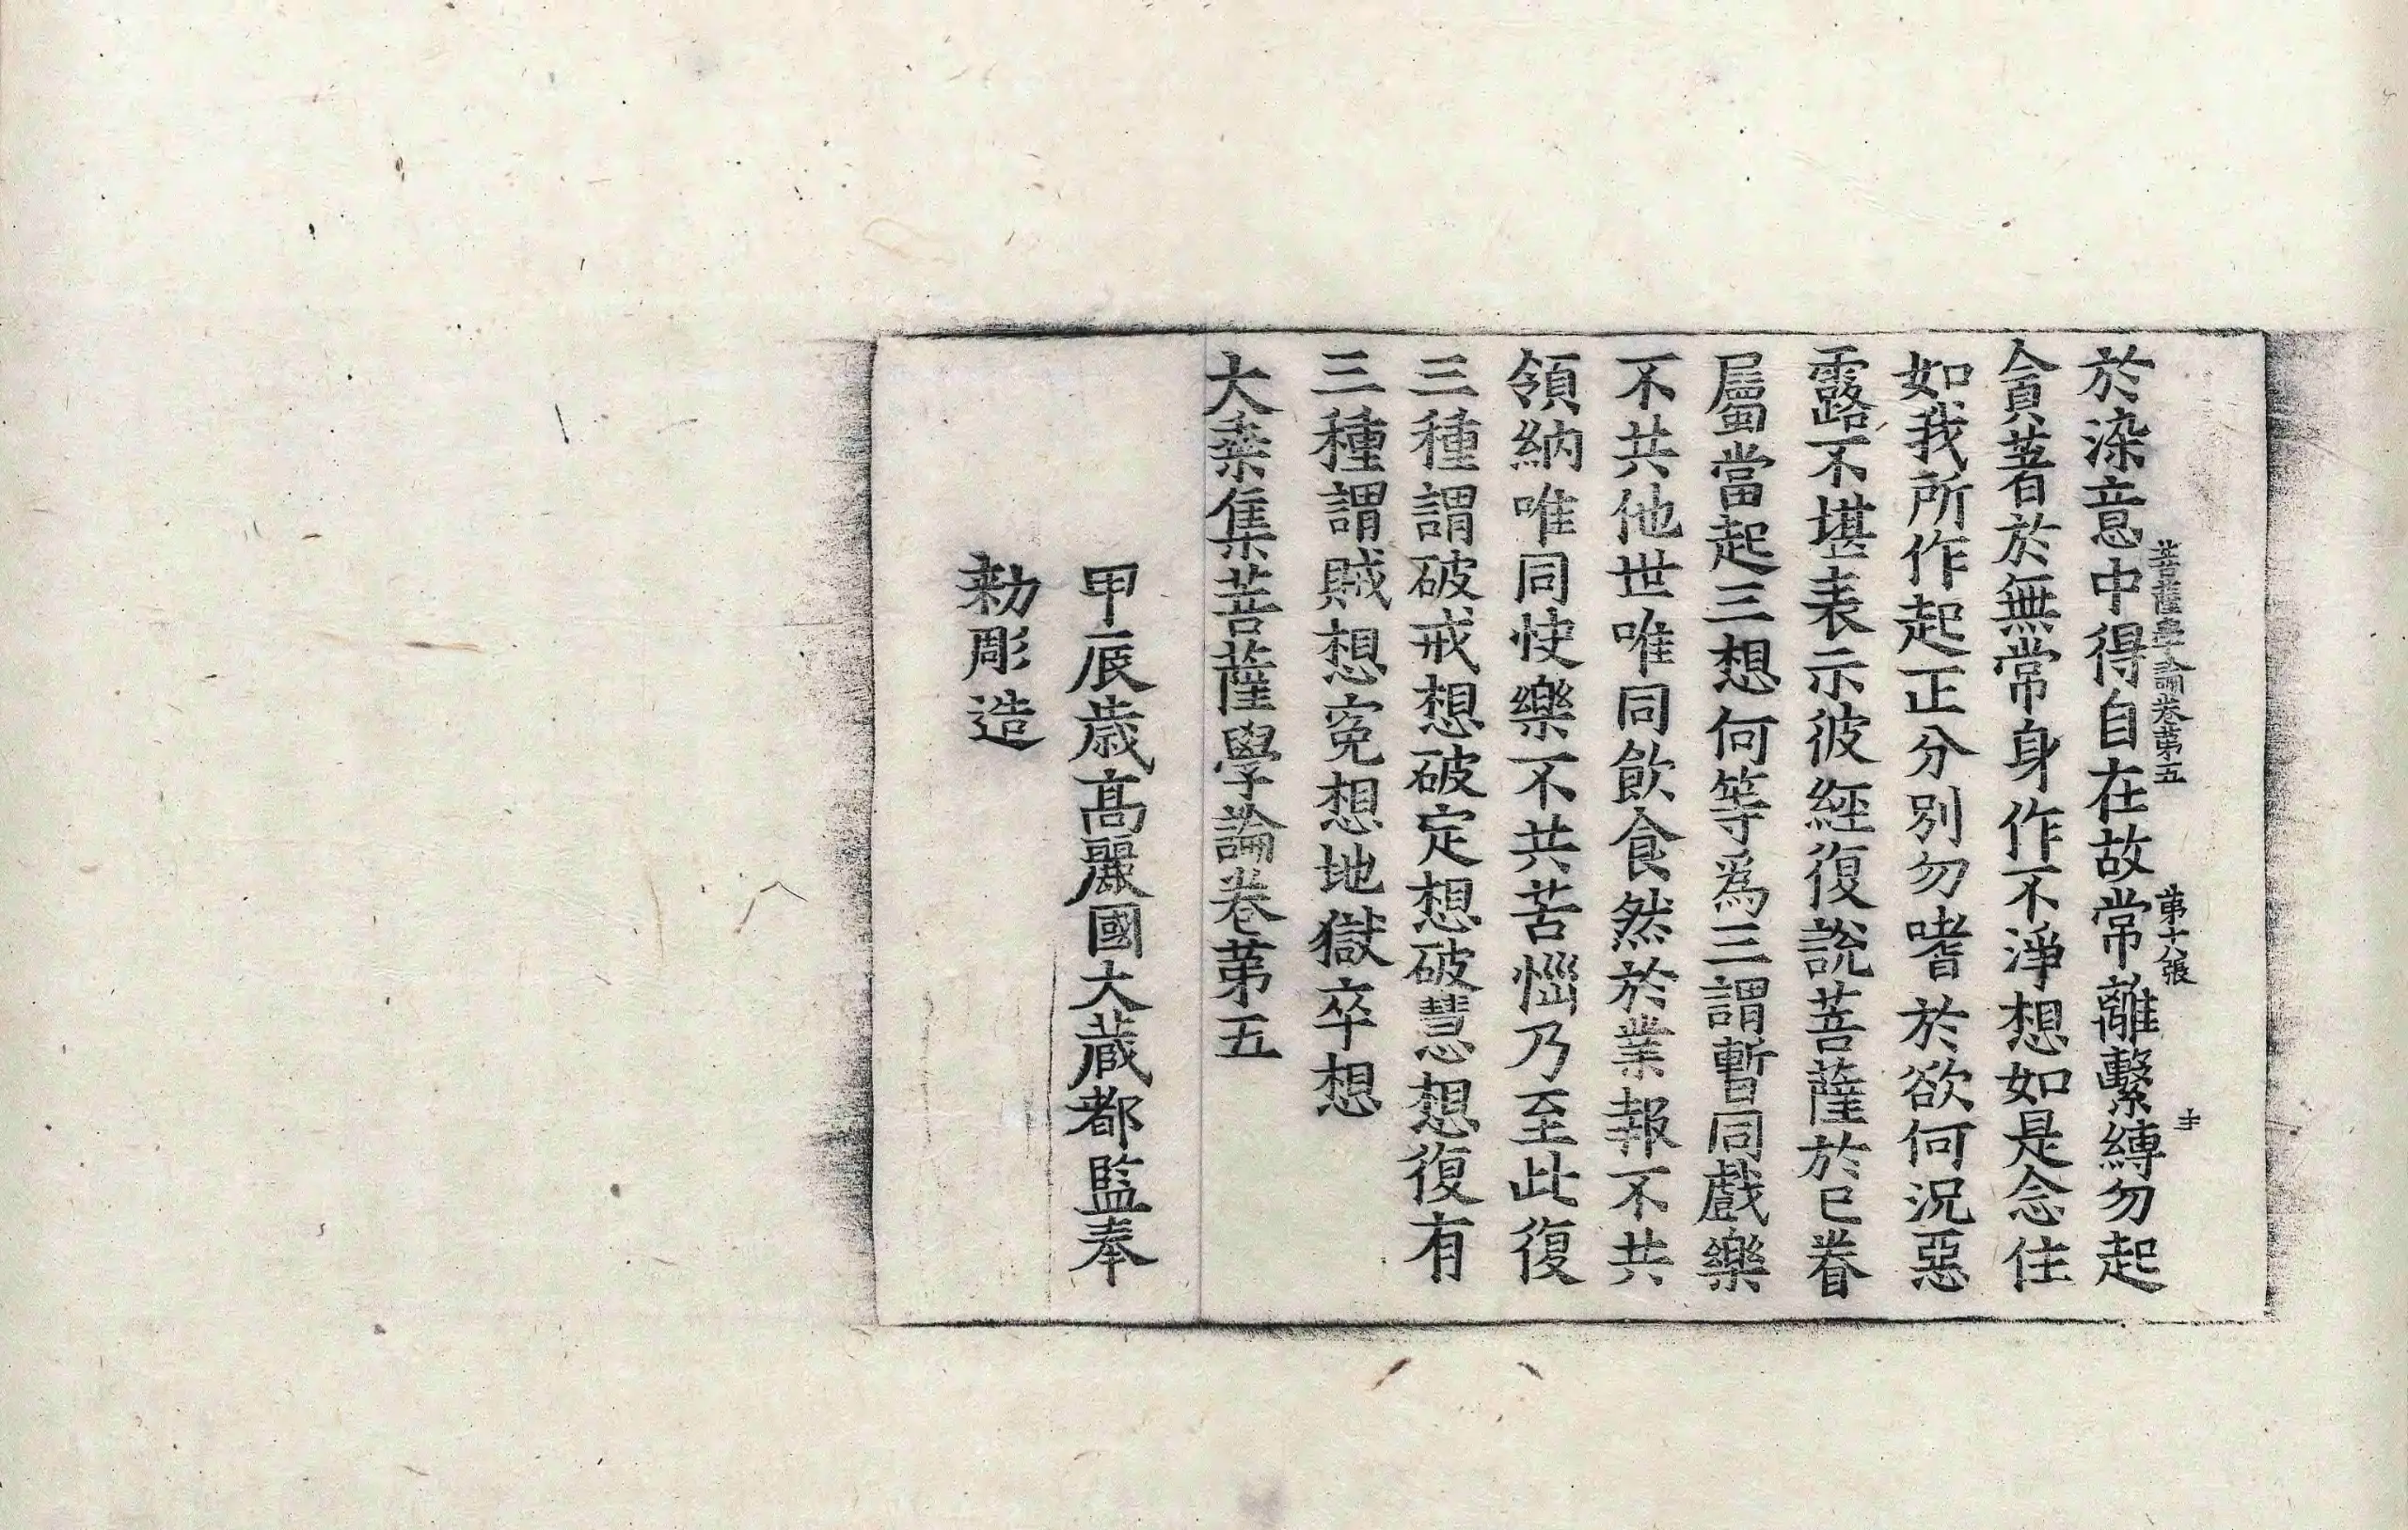 菩薩學論卷第五 第十八張 㐧
於染意中得自在故常離繫縛勿起
貪著於無常身作不淨想如是念住
如我所作起正分別勿嗜於欲何況惡
露不堪表示彼經復說菩薩於己眷
屬當起三想何等爲三謂暫同戲樂
不共他世唯同飮食然於業報不共
領納唯同快樂不共苦惱乃至此復
三種謂破戒想破定想破慧想復有
三種謂賊想寃想地獄卒想
大乘集菩薩學論卷第五
甲辰歲高麗國大藏都監奉
勅彫造